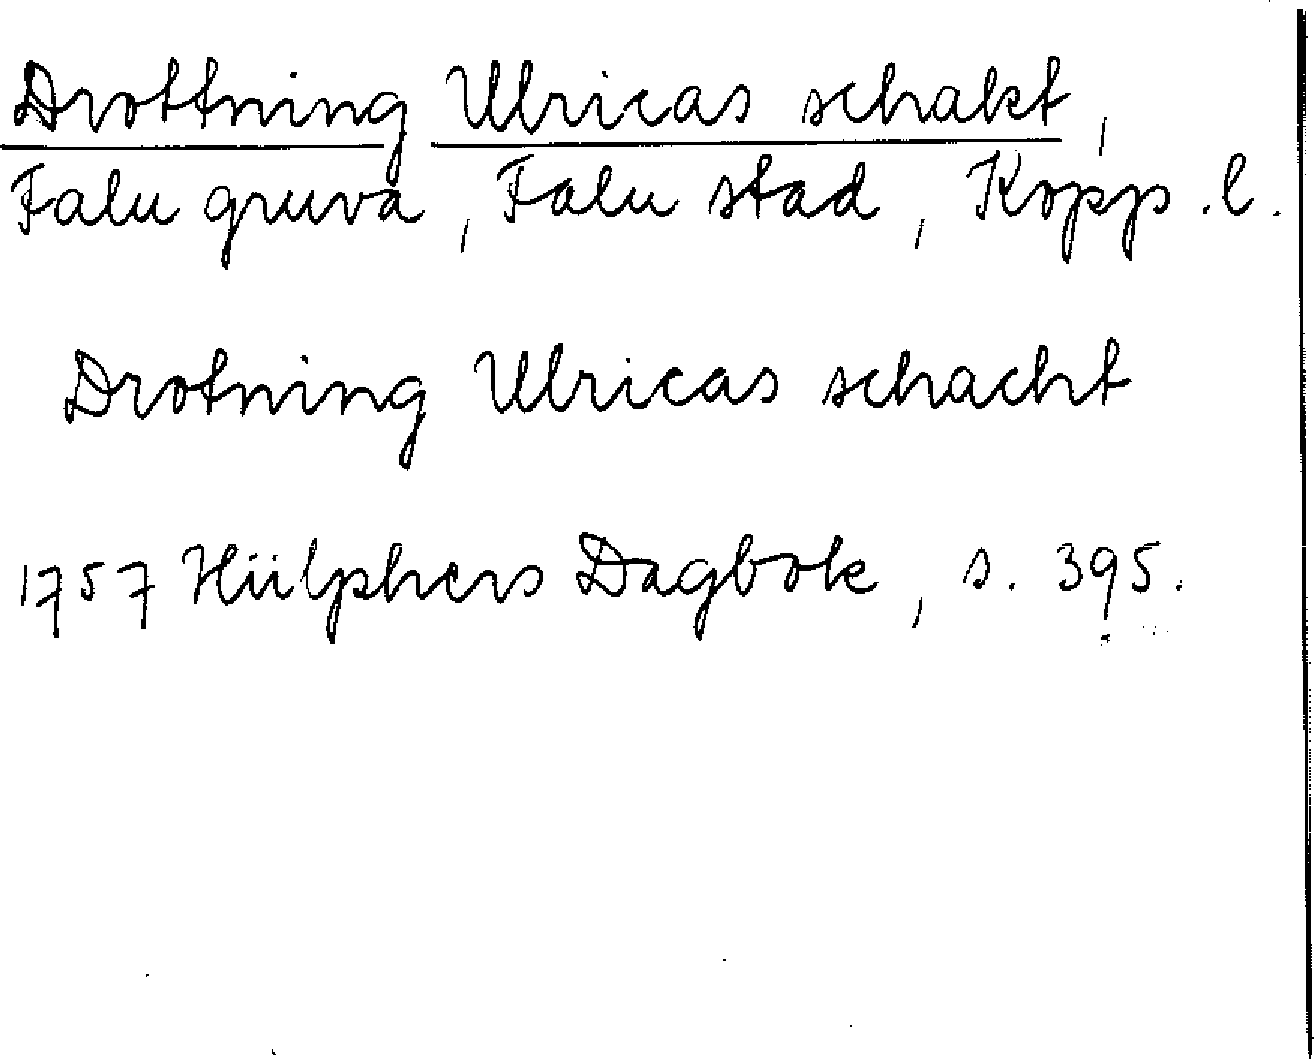 Drottning Ulricas schakt,
Falu gruva, Falu stad, Kopp.l.
Drotning Ulricas schacht
1757 Hülphers Dagbok, s. 395.